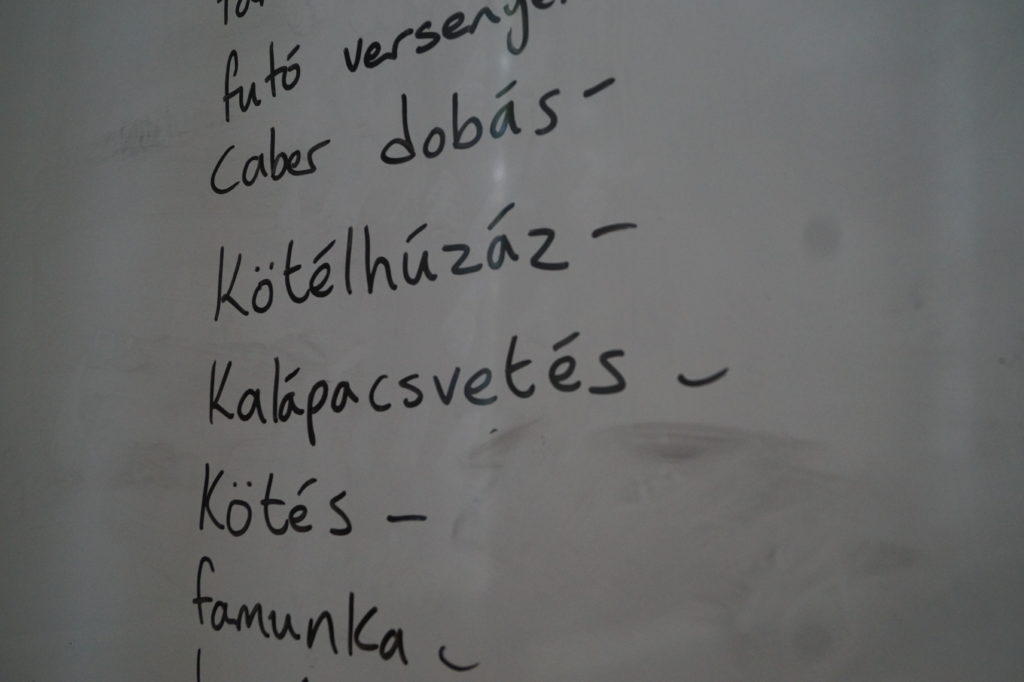 futó
caber dobás -
Kötélhúzáz -
Kalápacsvetés -
Kötés -
famunka -